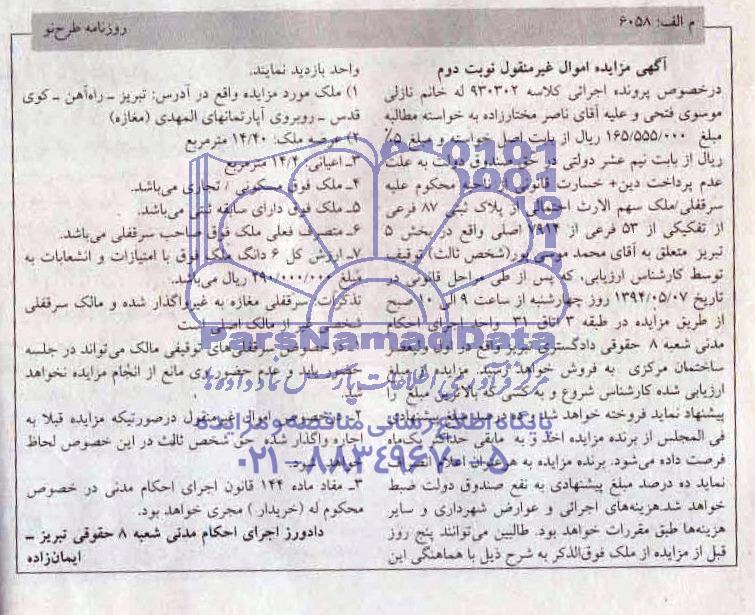 م الف: ۶۰۵۸
روزنامه طرح‌نو
آگهی مزایده اموال غیرمنقول نوبت دوم
درخصوص پرونده اجرائی کلاسه ۹۳۰۳۰۲ له خانم نازلی
موسوی فتحی و علیه آقای ناصر مختارزاده به خواسته مطالبه
مبلغ ۱۶۵/۵۵۵/۰۰۰ ریال از بابت اصل خواسته و مبلغ ۵٪
ریال از بابت نیم عشر دولتی در حق صندوق دولت به علت
عدم پرداخت دین+ خسارت قانونی از ناحیه محکوم علیه
سرقفلی/ملک سهم الارث احتمالی از پلاک ثبتی ۸۷ فرعی
از تفکیکی از ۵۳ فرعی از ۷۹۱۴ اصلی واقع در بخش ۵
تبریز متعلق به آقای محمد موسی‌پور(شخص ثالث) توقیف
توسط کارشناس ارزیابی، که پس از طی مراحل قانونی در
تاریخ ۱۳۹۴/۰۵/۰۷ روز چهارشنبه از ساعت ۹ الی ۱۰ صبح
از طریق مزایده در طبقه ۳ اتاق ۳۱ واحد اجرای احکام
مدنی شعبه ۸ حقوقی دادگستری تبریز واقع در اول ولیعصر
ساختمان مرکزی به فروش خواهد رسید. مزایده از مبلغ
ارزیابی شده کارشناس شروع و به کسی که بالاترین مبلغ را
پیشنهاد نماید فروخته خواهد شد و ده درصد مبلغ پیشنهادی،
فی المجلس از برنده مزایده اخذ و به مابقی حداکثر یک‌ماه
فرصت داده می‌شود. برنده مزایده به هر عنوان اعلام انصراف
نماید ده درصد مبلغ پیشنهادی به نفع صندوق دولت ضبط
خواهد شد.هزینه‌های اجرائی و عوارض شهرداری و سایر
هزینه‌ها طبق مقررات خواهد بود. طالبین می‌توانند پنج روز
قبل از مزایده از ملک فوق‌الذکر به شرح ذیل با هماهنگی این
واحد بازدید نمایند.
۱) ملک مورد مزایده واقع در آدرس: تبریز ـ راه‌آهن ـ کوی
قدس ـ روبروی آپارتمانهای المهدی (مغازه)
۲) عرصه ملک: ۱۴/۴۰ مترمربع
۳ـ اعیانی: ۱۴/۴ مترمربع
۴ـ ملک فوق مسکونی / تجاری می‌باشد.
۵ـ ملک فوق دارای سابقه ثبتی می‌باشد.
۶ـ متصرف فعلی ملک فوق صاحب سرقفلی می‌باشد.
۷ـ ارزش کل ۶ دانگ ملک فوق با امتیازات و انشعابات به
مبلغ ۴۹۰/۰۰۰/۰۰۰ ریال می‌باشد.
تذکرات: سرقفلی مغازه به غیر واگذار شده و مالک سرقفلی
شخصی غیر از مالک اصلی است
۱ـ در خصوص سرقفلی‌های توقیفی مالک می‌تواند در جلسه
حضور یابد و عدم حضور وی مانع از انجام مزایده نخواهد
شد.
۲ـ در خصوص اموال غیرمنقول درصورتیکه مزایده قبلا به
اجاره واگذار شده حق شخص ثالث در این خصوص لحاظ
خواهد شد.
۳ـ مفاد ماده ۱۴۴ قانون اجرای احکام مدنی در خصوص
محکوم له (خریدار) مجری خواهد بود.
دادورز اجرای احکام مدنی شعبه ۸ حقوقی تبریز ـ
ایمان‌زاده
ParsNamadData
مرکز فرآوری اطلاعات پارس نماد داده‌ها
پایگاه اطلاع رسانی مناقصه و مزایده
۰۲۱-۸۸۳۴۹۶۷۰-۵